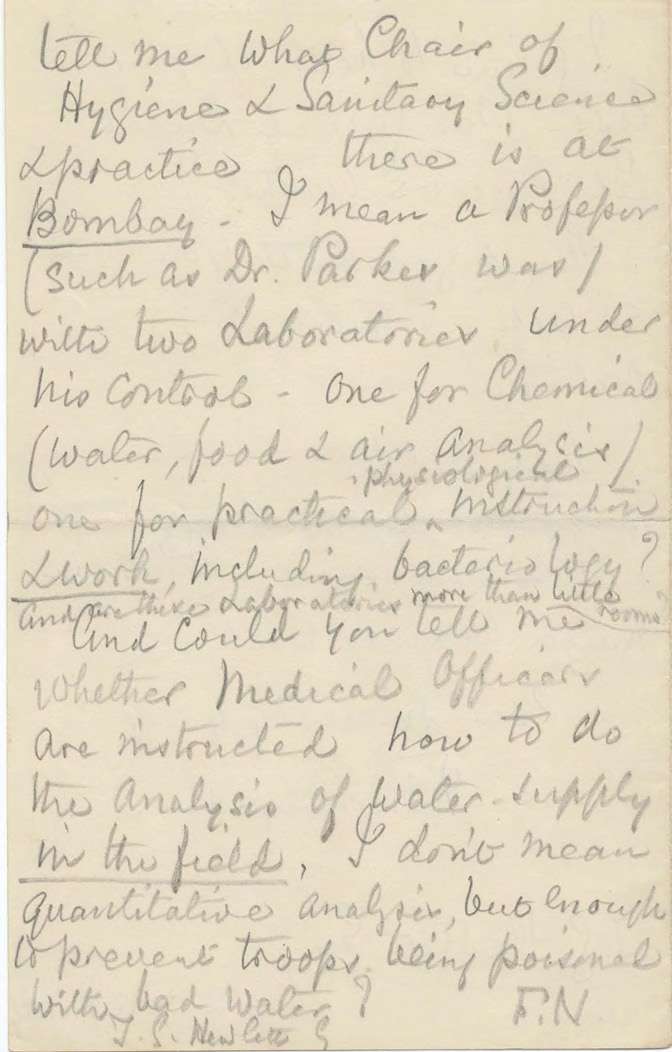 tell me what Chair of
Hygiene & Sanitary Science
& practice there is at
Bombay - I mean a Professor
(such as Dr. Parkes was)
with two Laboratories under
his control - one for Chemical
(water, food & air analysis)
physiological
one for practical ^ instruction
& work, including bacteriology?
and are these Laboratories more than little
rooms
And could you tell me
whether Medical Officers
are instructed how to do
the analysis of water-supply
in the field, I don't mean
quantitative analysis, but enough
to prevent troops being poisoned
with bad water?
F.N
T. G. Hewlett